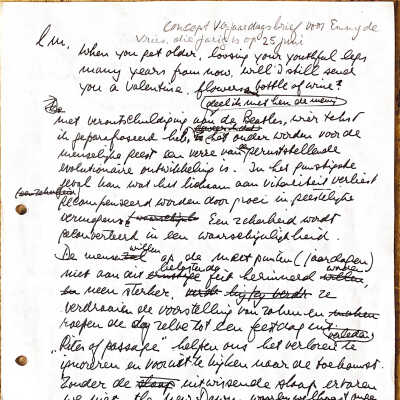 Concept Verjaardagsbrief voor Enny de
Vries, die jarig is op 25 juni
l m, When you get older, loosing your youthful legs
many years from now, will I still send
you a Valentine, flowers bottle of wine?
deel ik met hen de mening
met verontschuldiging aan de Beatles, wier tekst
ik geparafraseerd heb, het ouder worden voor de
menselijke geest een verre van geruststellende
evolutionaire ontwikkeling is. In het gunstigste
geval kan wat het lichaam aan vitaliteit verliest
gecompenseerd worden door groei in geestelijke
vermogens. Een zekerheid wordt
geconverteerd in een waarschijnlijkheid.
De mensen willen op de meet punten (jaardagen)
niet aan dit feit herinnerd worden
meen sterker, ze
verdraaien de voorstelling van zaken en
roepen die dag zelve tot een feestdag uit
"Rites of passage" helpen ons het verloren te
ignoreren en vooruit te kijken naar de toekomst.
Zonder de uitwissende slaap ervaren
we niet the New Dawn,